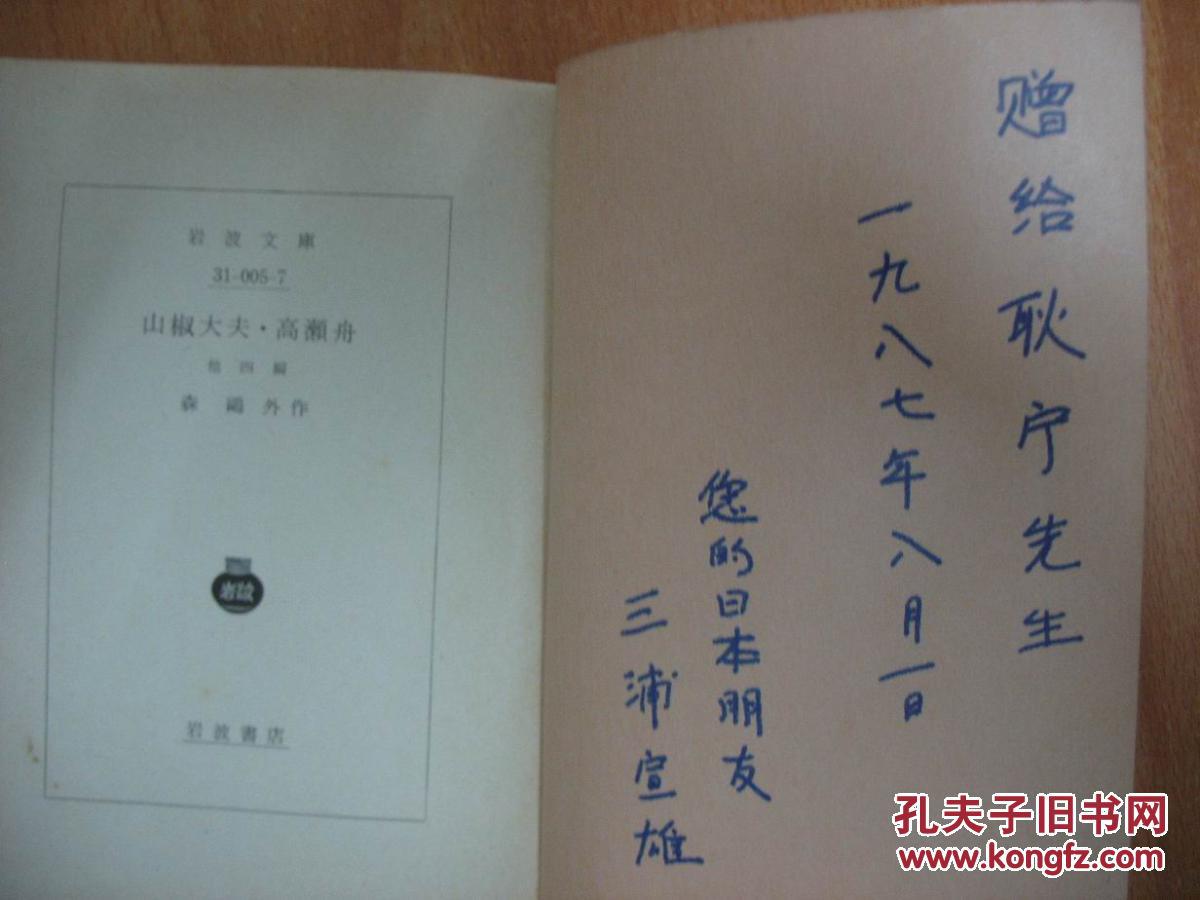 岩波文庫
31-005-7
山椒大夫・高瀬舟
他四編
森鷗外作
岩波
岩波書店
赠给耿宁先生
一九八七年八月一日
您的日本朋友
三浦宣雄
孔夫子旧书网
www.kongfz.com